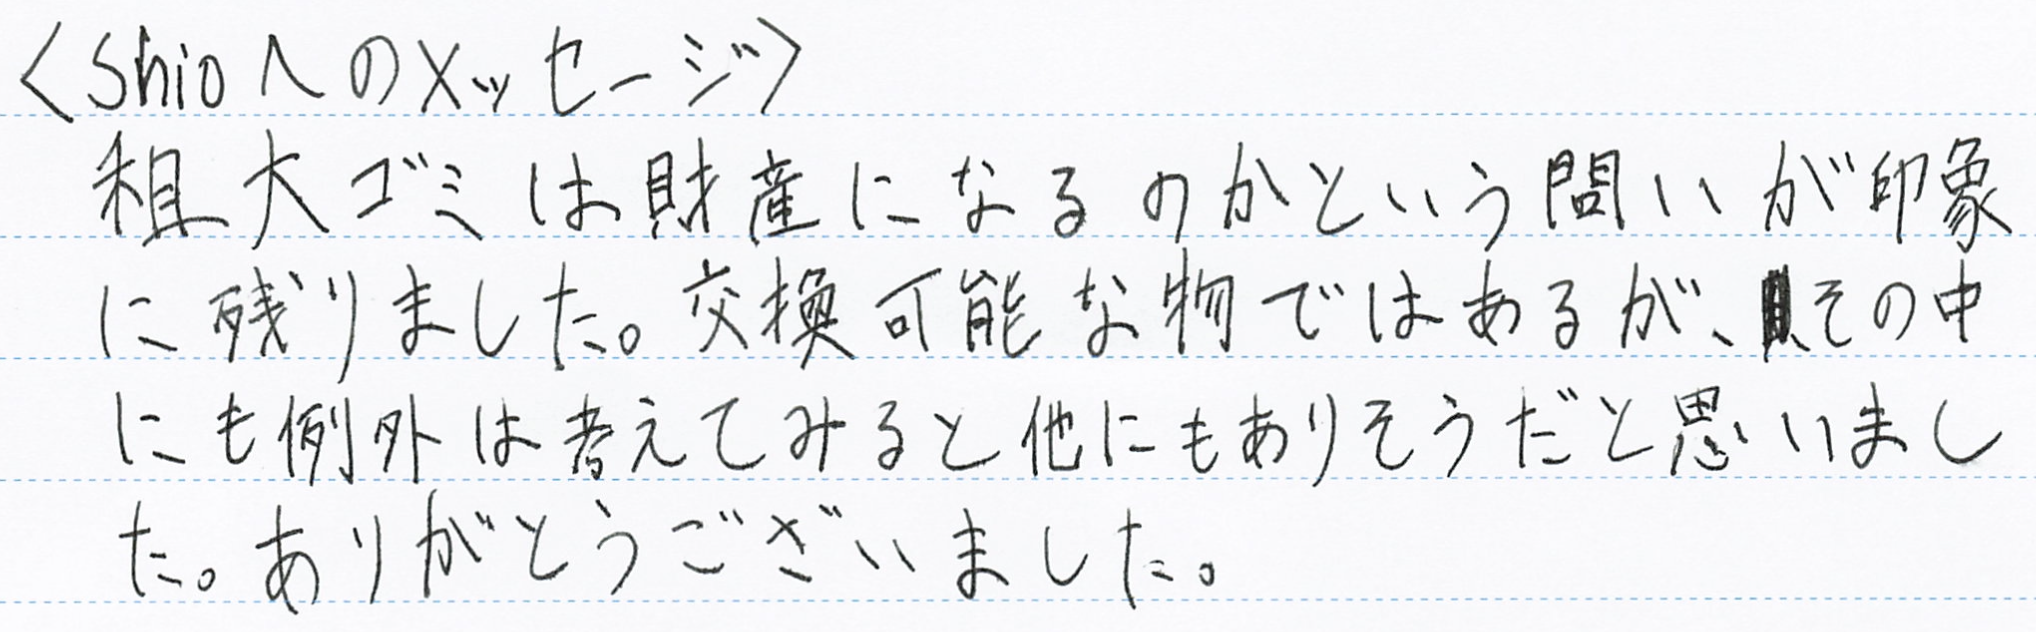 〈Shioへのメッセージ〉
粗大ゴミは財産になるのかという問いが印象
に残りました。交換可能な物ではあるが、その中
にも例外は考えてみると他にもありそうだと思いまし
た。ありがとうございました。